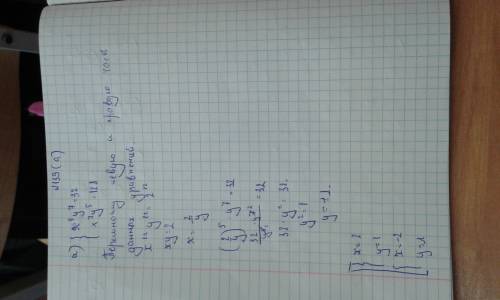 а) { x⁵y⁷=32
x⁷y⁵=128
Перемножу левую и правую части
данных уравнений.
x¹²y¹²=2¹²
xy=2
x=2/y
(2/y)⁵ y⁷=32
32·y⁷/y⁵=32
32·y²=32
y²=1
y=±1.
x=2
y=1
x=-2
y=1